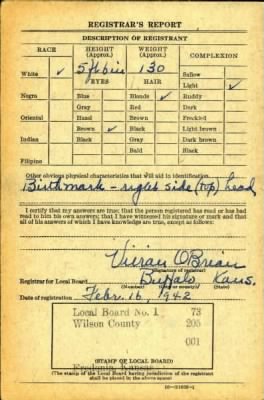 REGISTRAR'S REPORT
DESCRIPTION OF REGISTRANT
RACE HEIGHT (Approx.) WEIGHT (Approx.) COMPLEXION
White ✓ 5 ft 6 in 130 Sallow
EYES HAIR Light ✓
Negro Blue Blonde ✓ Ruddy
Gray Red Dark
Oriental Hazel Brown Freckled
Brown ✓ Black Light brown
Indian Black Gray Dark brown
Bald Black
Filipino
Other obvious physical characteristics that will aid in identification
Birthmark - right side (top) head
I certify that my answers are true; that the person registered has read or has had
read to him his own answers; that I have witnessed his signature or mark and that
all of his answers of which I have knowledge are true, except as follows:
O'Brien
(Signature of registrar)
Registrar for Local Board Buffalo Kans.
(Number) (City or county) (State)
Date of registration Febr. 16, 1942
Local Board No. 1 73
Wilson County 205
001
Fredonia, Kansas
(STAMP OF LOCAL BOARD)
(The stamp of the Local Board having jurisdiction of the registrant
shall be placed in the above space)